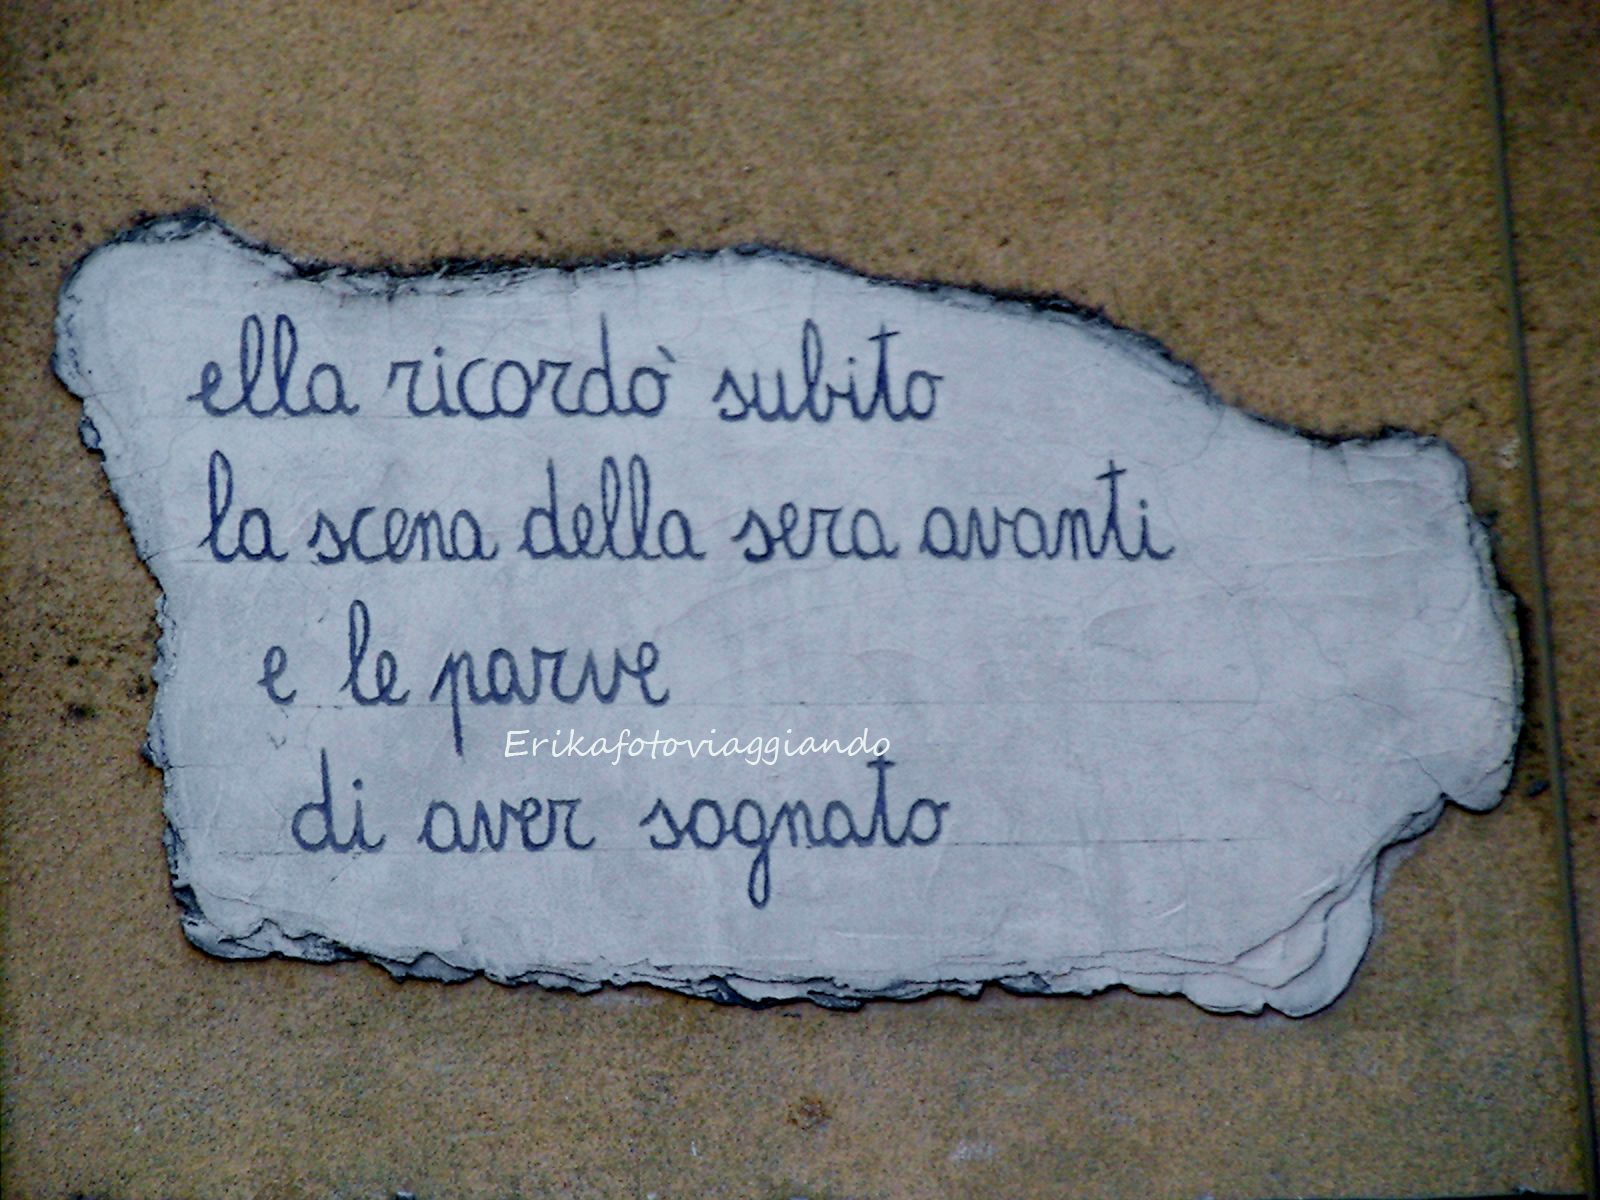 ella ricordò subito
la scena della sera avanti
e le parve
Erikafotoviaggiando
di aver sognato